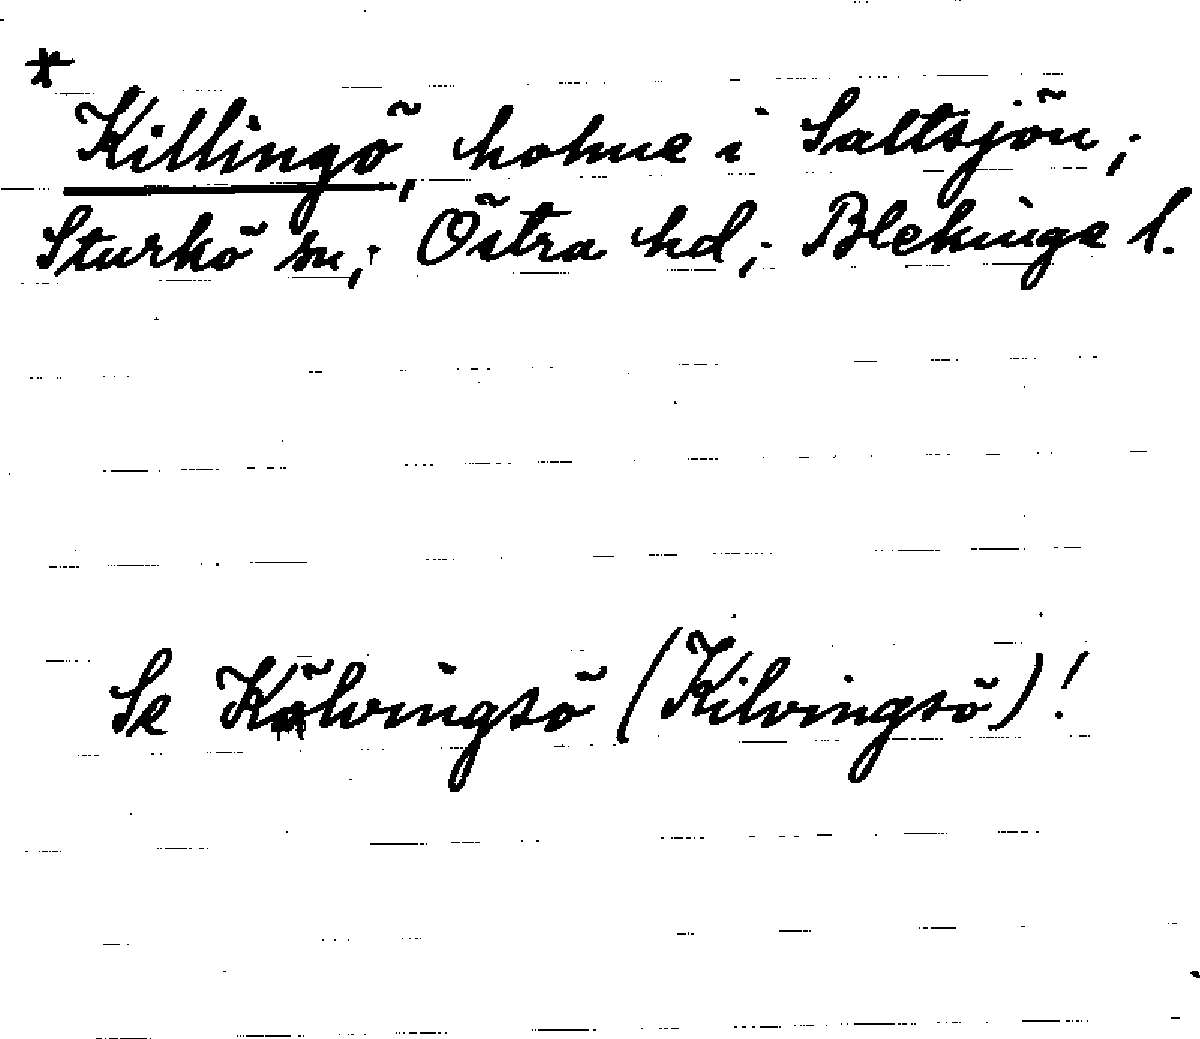 *
Killingö, holme i Saltsjön;
Sturkö sn; Östra hd; Blekinge l.
Se Kölvingsö (Kilvingsö)!